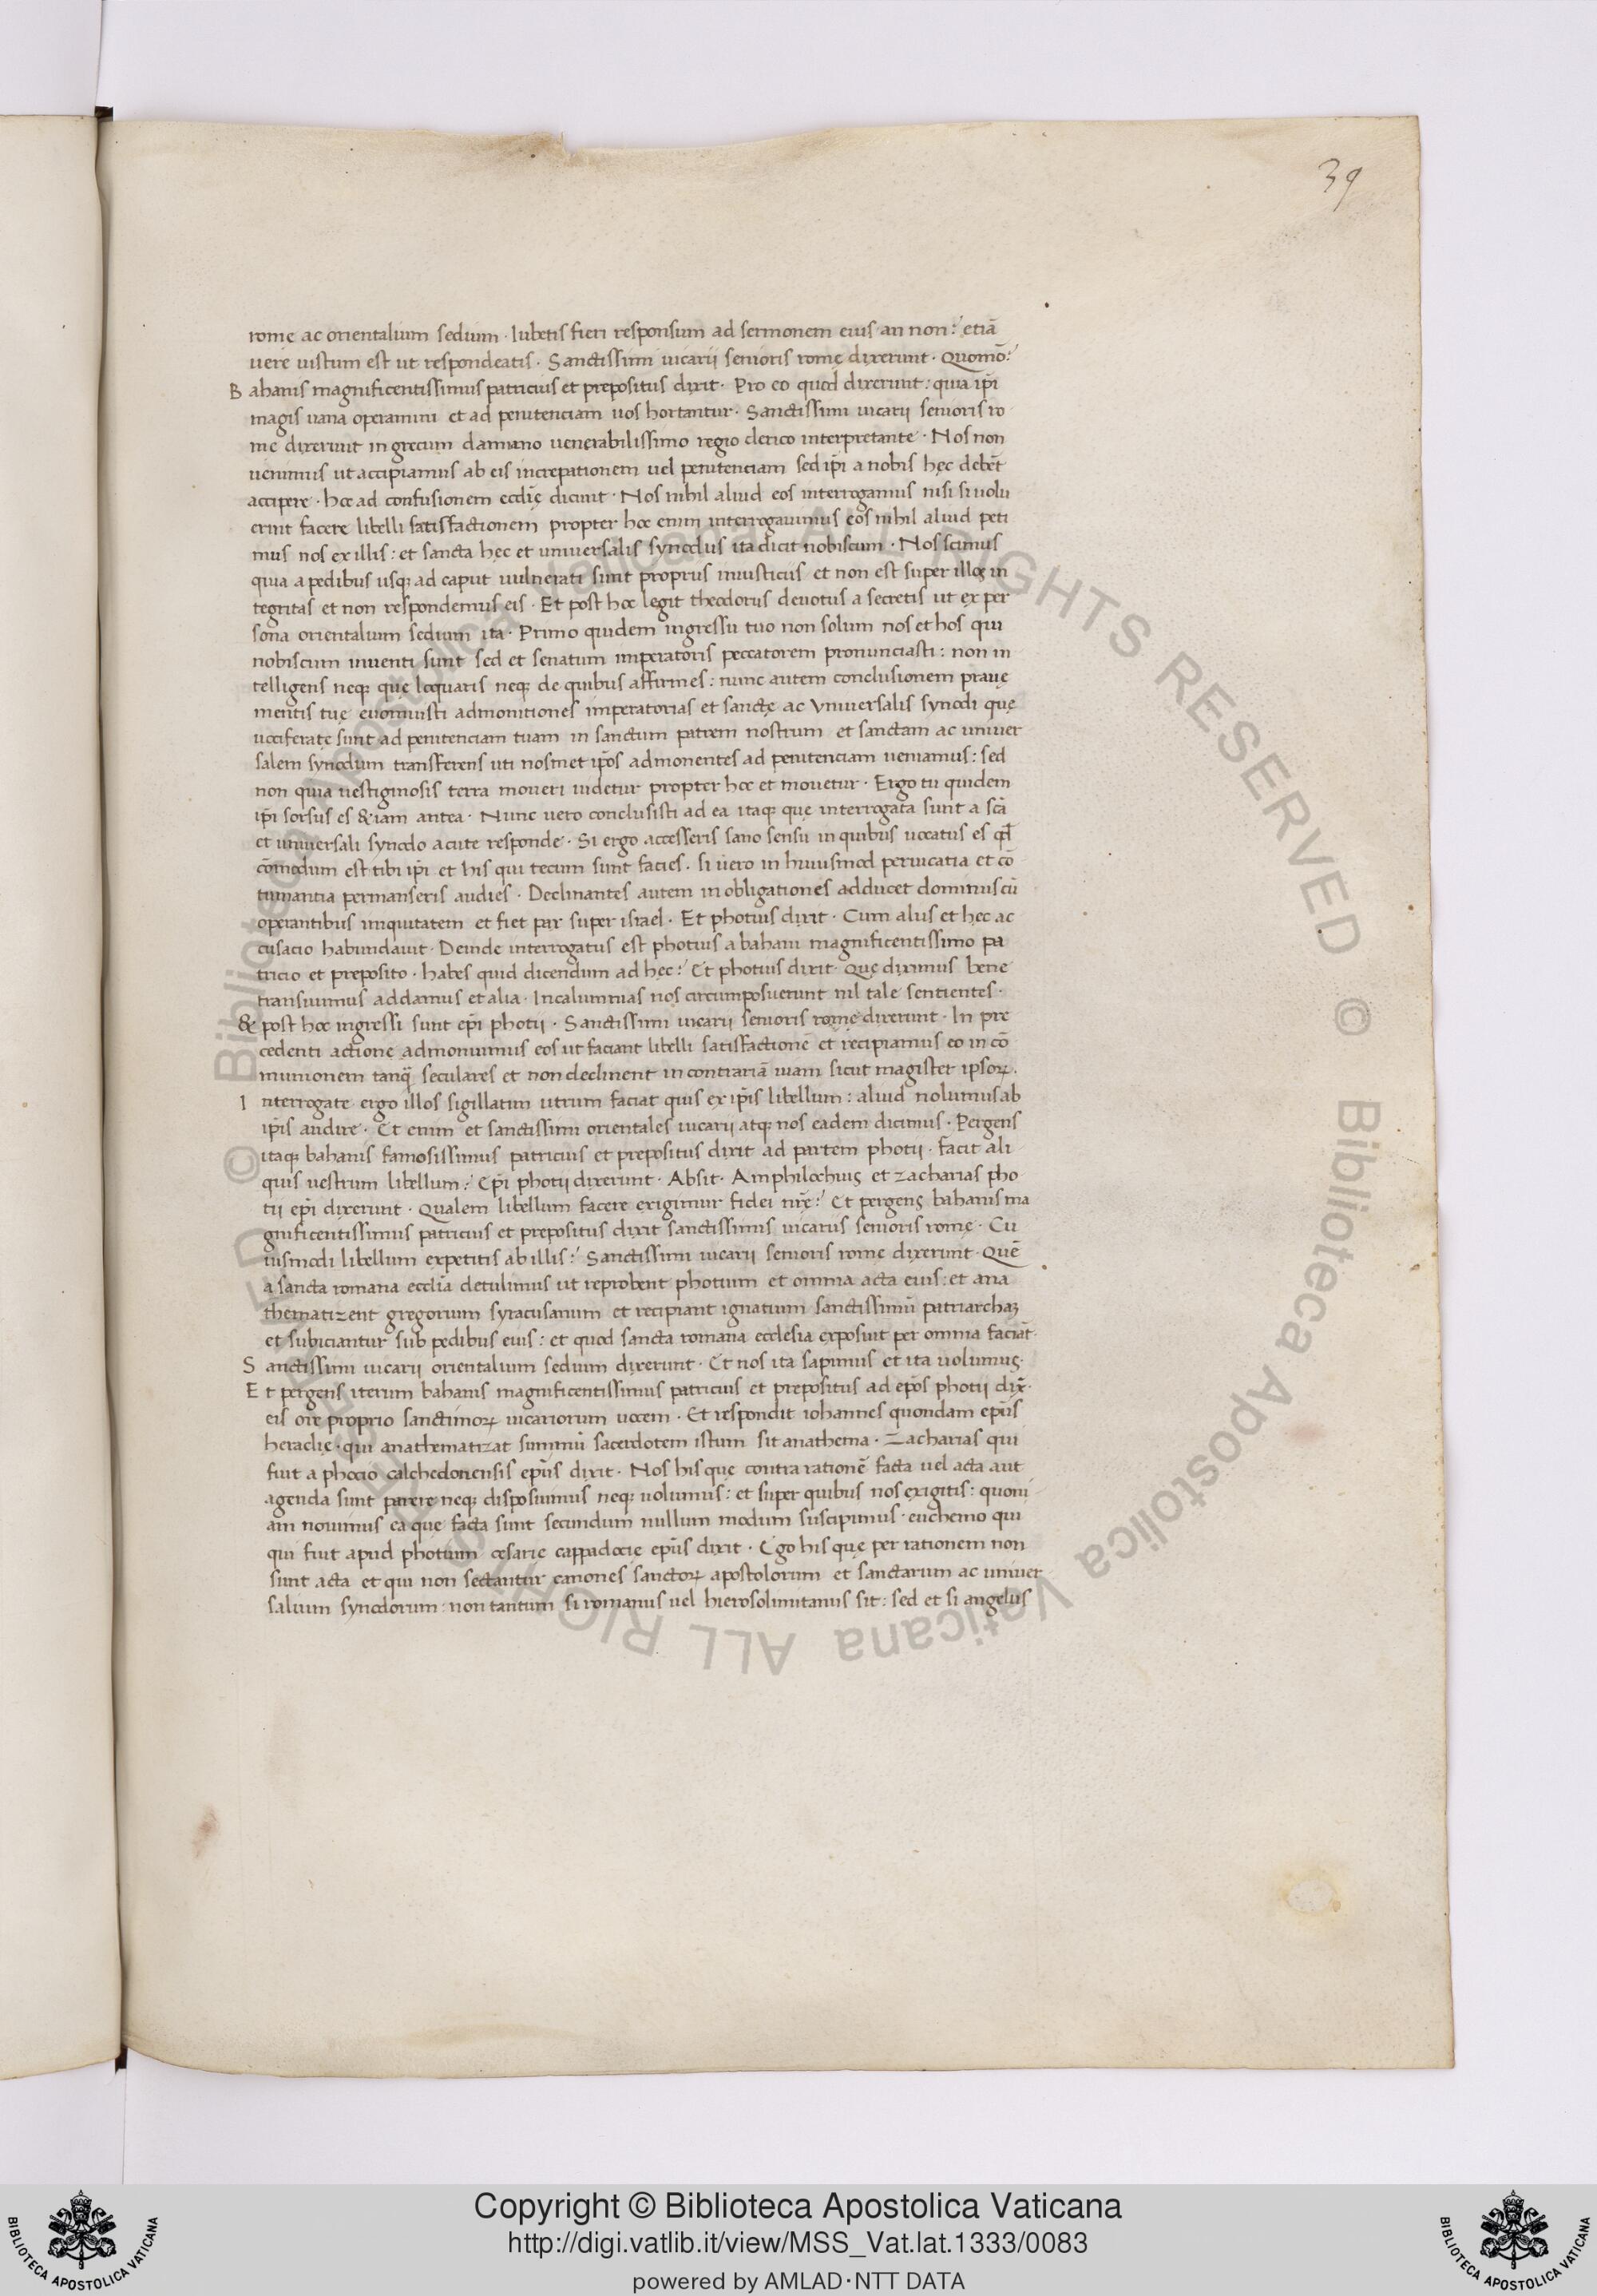 39
rome ac orientalium sedium · Iubetis fieri responsum ad sermonem eius an non? etiã
uere uisum est ut respondeatis · Sanctissimi uicarii senioris rome dixerunt · Quomõ?
Bahanis magnificentissimus patricius et prepositus dixit · Pro eo quod dixerunt: quia ip̃i
magis uana operamini et ad penitenciam uos hortantur · Sanctissimi uicarii senioris ro
me dixerunt in grecum damiano uenerabilissimo regio clerico interpretante · Nos non
uenimus ut accipiamus ab eis increpationem uel penitenciam sed ip̃i a nobis hęc debẽt
accipere · hoc ad confusionem eccłię dicunt · Nos nihil aliud eos interrogamus nisi si uolu
erint facere libelli satisfactionem propter hoc enim interrogauimus eos nihil aliud peti
mus nos ex illis: et sancta hęc et uniuersalis synodus ita dicit nobiscum · Nos scimus
quia a pedibus usqꝫ ad caput uulnerati sunt propriis iniusticiis et non est super illoꝝ in
tegritas et non respondemus eis · Et post hoc legit theodorus deuotus a secretis ut ex per
sona orientalium sedium ita · Primo quidem ingressu tuo non solum nos et hos qui
nobiscum inuenti sunt sed et senatum imperatoris peccatorem pronunciasti: non in
telligens neqꝫ quę loquaris neqꝫ de quibus affirmes: nunc autem conclusionem prauę
mentis tuę euomuisti admonitiones imperatorias et sanctę ac Vniuersalis synodi quę
uociferatę sunt ad penitenciam tuam in sanctum patrem nostrum et sanctam ac uniuer
salem synodum transferens uti nosmet ip̃os admonentes ad penitenciam ueniamus: sed
non quia uestiginosis terra moueri uidetur propter hoc et mouetur · Ergo tu quidem
ip̃i sorsus es &iam antea · Nunc uero conclusisti ad ea itaqꝫ quę interrogata sunt a scã
et uniuersali synodo acute responde · Si ergo accesseris sano sensu in quibus uocatus es qđ
cõmodum est tibi ip̃i et his qui tecum sunt facies · si uero in huiusmodi peruicatia et cõ
tumantia permanseris audies · Declinantes autem in obligationes adducet dominus cũ
operantibus iniquitatem et fiet pax super israel · Et photius dixit · Cum aliis et hęc ac
cusacio habundauit · Deinde interrogatus est photius a bahani magnificentissimo pa
tricio et preposito · habes quid dicendum ad hęc? Et photius dixit · Quę diximus bene
transiuimus addamus et alia · In calumnias nos circumposuerunt nil tale sentientes ·
& post hoc ingressi sunt ep̃i photii · Sanctissimi uicarii senioris romę dixerunt · In pre
cedenti actione admonuimus eos ut faciant libelli satisfactionẽ et recipiamus eo in cõ
munionem tanq̃ seculares et non declinent in contrariã uiam sicut magister ipsoꝝ ·
Interrogate ergo illos sigillatim utrum faciat quis ex ip̃is libellum: aliud nolumus ab
ip̃is audire · Et enim et sanctissimi orientales uicarii atqꝫ nos eadem dicimus · Pergens
itaqꝫ bahanis famosissimus patricius et prepositus dixit ad partem photii · facit ali
quis uestrum libellum? Ep̃i photii dixerunt · Absit · Amphilochius et zacharias pho
tii ep̃i dixerunt · Qualem libellum facere exigimur fidei nr̃ę? Et pergens bahanis ma
gnificentissimus patricius et prepositus dixit sanctissimis uicariis senioris romę · Cu
iusmodi libellum expetitis ab illis? Sanctissimi uicarii senioris rome dixerunt · Quẽ
a sancta romana eccłia detulimus ut reprobent photium et omnia acta eius: et ana
thematizent gregorium syracusanum et recipiant ignatium sanctissimũ patriarchaꝫ
et subiciantur sub pedibus eius: et quod sancta romana ecclesia exposuit per omnia faciãt ·
Sanctissimi uicarii orientalium sedium dixerunt · Et nos ita sapimus et ita uolumus ·
Et pergens iterum bahanis magnificentissimus patricius et prepositus ad ep̃os photii dix̃ ·
eis ore proprio sanctimoꝝ uicariorum uocem · Et respondit iohannes quondam ep̃us
heraclię · qui anathematizat summũ sacerdotem istum sit anathema · Zacharias qui
fuit a phocio calchedonensis ep̃us dixit · Nos his quę contra rationẽ facta uel acta aut
agenda sunt parere neqꝫ disposuimus neqꝫ uolumus: et super quibus nos exigitis: quoni
am nouimus ea quę facta sunt secundum nullum modum suscipimus · euchemo qui
qui fuit apud photium cesarię cappadocię ep̃us dixit · Ego his quę per rationem non
sunt acta et qui non sectantur canones sanctoꝝ apostolorum et sanctarum ac uniuer
salium synodorum: non tantum si romanus uel hierosolimitanus sit: sed et si angelus
© Biblioteca Apostolica Vaticana ALL RIGHTS RESERVED © Biblioteca Apostolica Vaticana ALL RIGHTS RESERVED
Copyright © Biblioteca Apostolica Vaticana
http://digi.vatlib.it/view/MSS_Vat.lat.1333/0083
powered by AMLAD·NTT DATA
BIBLIOTECA APOSTOLICA VATICANA
BIBLIOTECA APOSTOLICA VATICANA